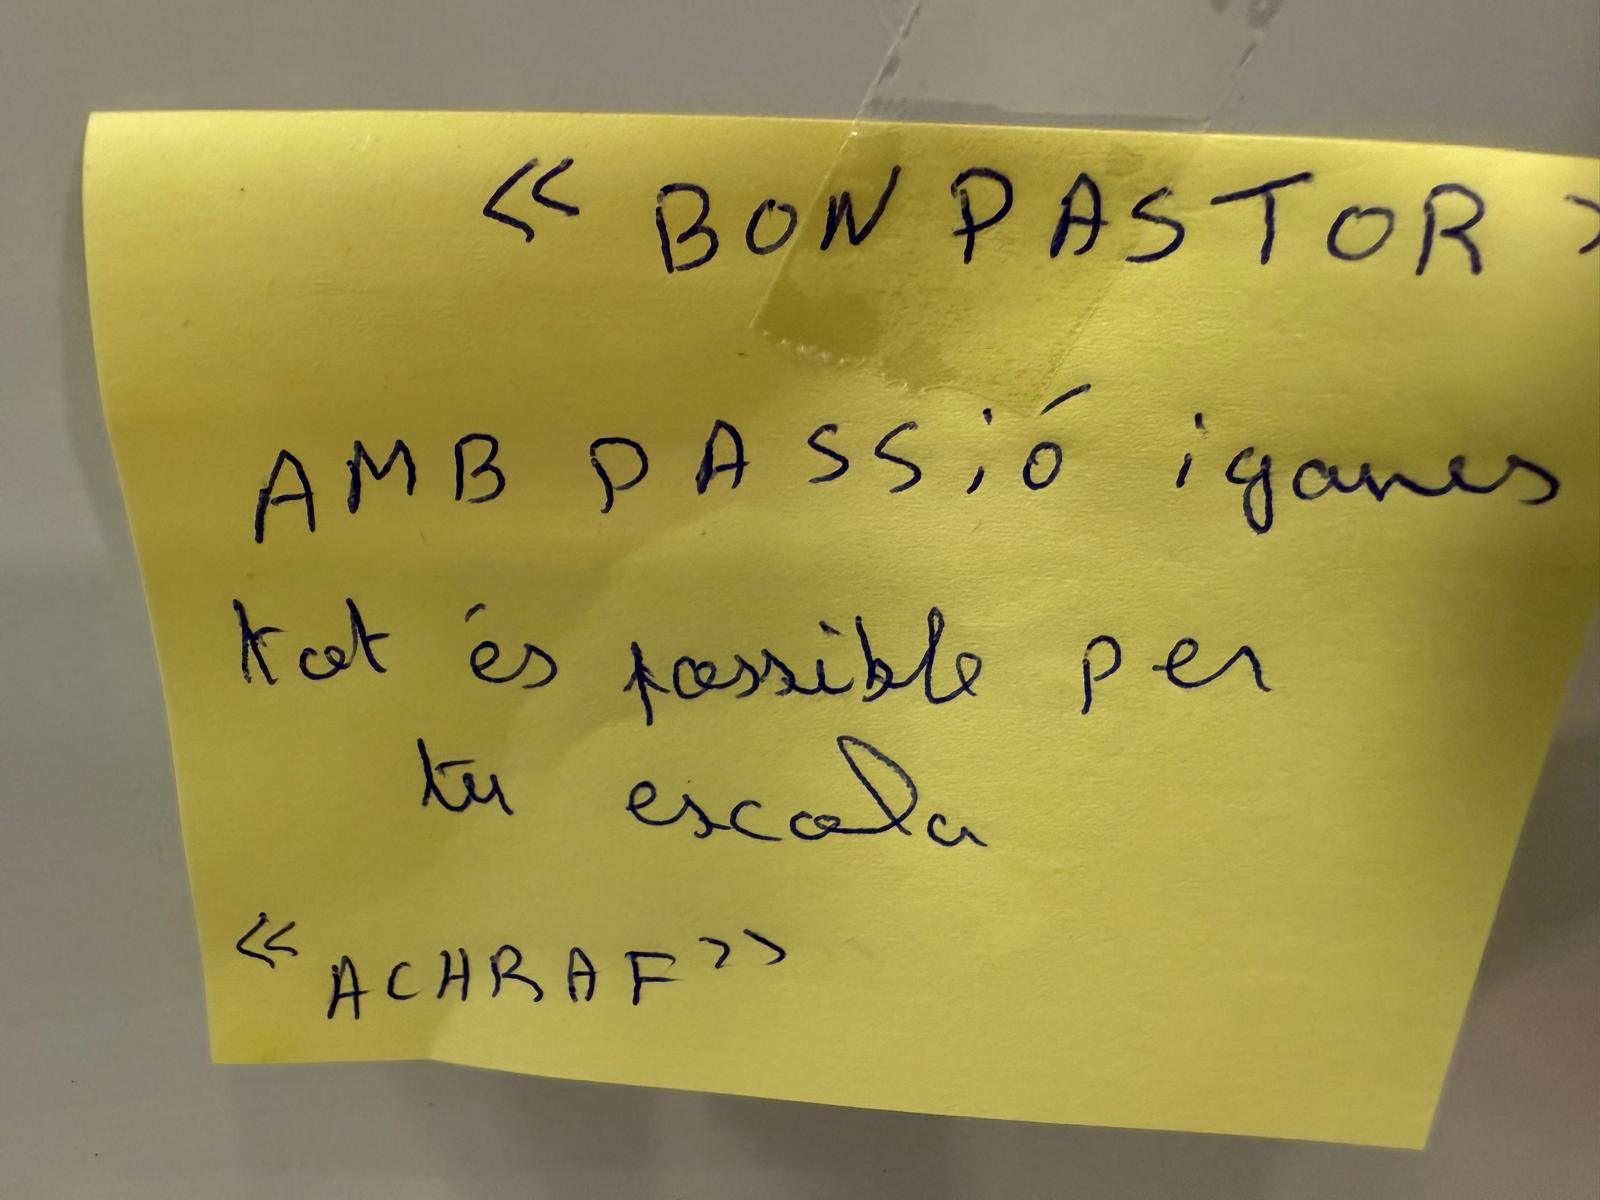 « BON PASTOR >
AMB PASSiÓ i ganes
tot és possible per
tu escola
« ACHRAF »